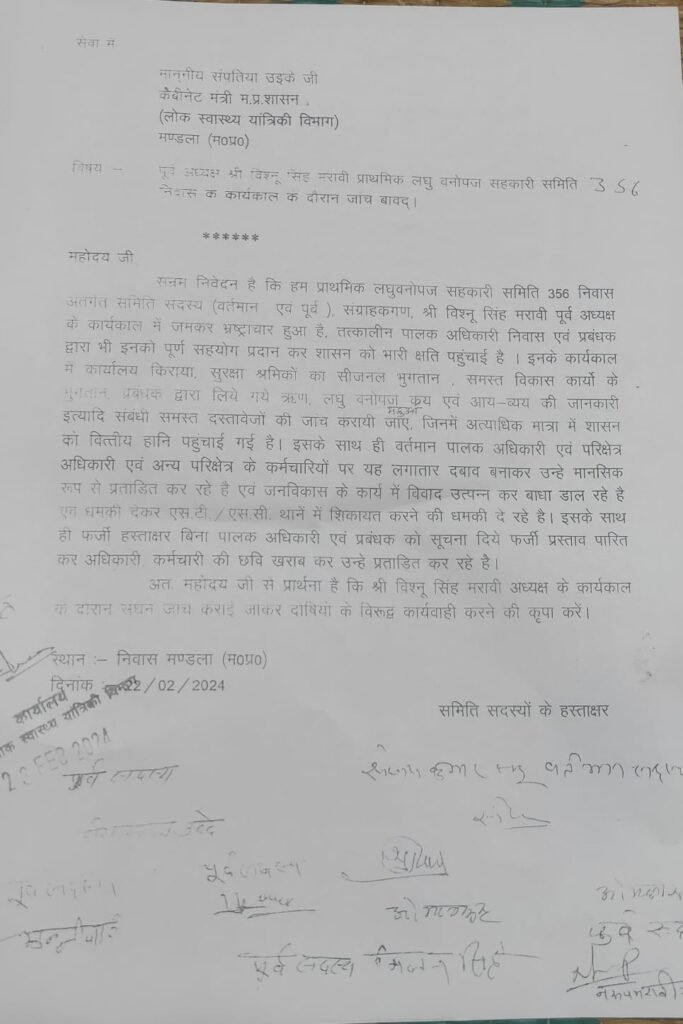 सेवा में
माननीय संपतिया उइके जी
कैबीनेट मंत्री म.प्र.शासन .
(लोक स्वास्थ्य यांत्रिकी विभाग)
मण्डला (म०प्र०)
विषय :- पूर्व अध्यक्ष श्री विश्नू सिंह मरावी प्राथमिक लघु वनोपज सहकारी समिति 356
निवास के कार्यकाल के दौरान जांच बावद्।
******
महोदय जी
सनम्र निवेदन है कि हम प्राथमिक लघुवनोपज सहकारी समिति 356 निवास
अंतर्गत समिति सदस्य (वर्तमान एवं पूर्व ), संग्राहकगण, श्री विश्नू सिंह मरावी पूर्व अध्यक्ष
के कार्यकाल में जमकर भ्रष्ट्राचार हुआ है, तत्कालीन पालक अधिकारी निवास एवं प्रबंधक
द्वारा भी इनको पूर्ण सहयोग प्रदान कर शासन को भारी क्षति पहुंचाई है । इनके कार्यकाल
में कार्यालय किराया, सुरक्षा श्रमिकों का सीजनल भुगतान , समस्त विकास कार्यो के
भुगतान, प्रबंधक द्वारा लिये गये ऋण, लघु वनोपज क्रय एवं आय-व्यय की जानकारी
इत्यादि संबंधी समस्त दस्तावेजों की जांच करायी जाएं, जिनमें अत्याधिक मात्रा में शासन
को वित्तीय हानि पहुंचाई गई है। इसके साथ ही वर्तमान पालक अधिकारी एवं परिक्षेत्र
अधिकारी एवं अन्य परिक्षेत्र के कर्मचारियों पर यह लगातार दबाव बनाकर उन्हे मानसिक
रूप से प्रताडित कर रहे है एवं जनविकास के कार्य में विवाद उत्पन्न कर बाधा डाल रहे है
एवं धमकी देकर एस.टी./एस.सी. थानें में शिकायत करने की धमकी दे रहे है। इसके साथ
ही फर्जी हस्ताक्षर बिना पालक अधिकारी एवं प्रबंधक को सूचना दिये फर्जी प्रस्ताव पारित
कर अधिकारी, कर्मचारी की छवि खराब कर उन्हे प्रताडित कर रहे है।
अतः महोदय जी से प्रार्थना है कि श्री विश्नू सिंह मरावी अध्यक्ष के कार्यकाल
के दौरान सघन जांच कराई जाकर दोषियों के विरूद्व कार्यवाही करने की कृपा करें।
स्थान :- निवास मण्डला (म०प्र०)
दिनांक :- 22/02/2024
समिति सदस्यों के हस्ताक्षर
कार्यालय
लोक स्वास्थ्य यांत्रिकी विभाग
FEB 2024
पूर्व सदस्य
कुमार साहू वर्तमान सदस्य
पूर्व सदस्य
पूर्व सदस्य
पूर्व सदस्य सिंह